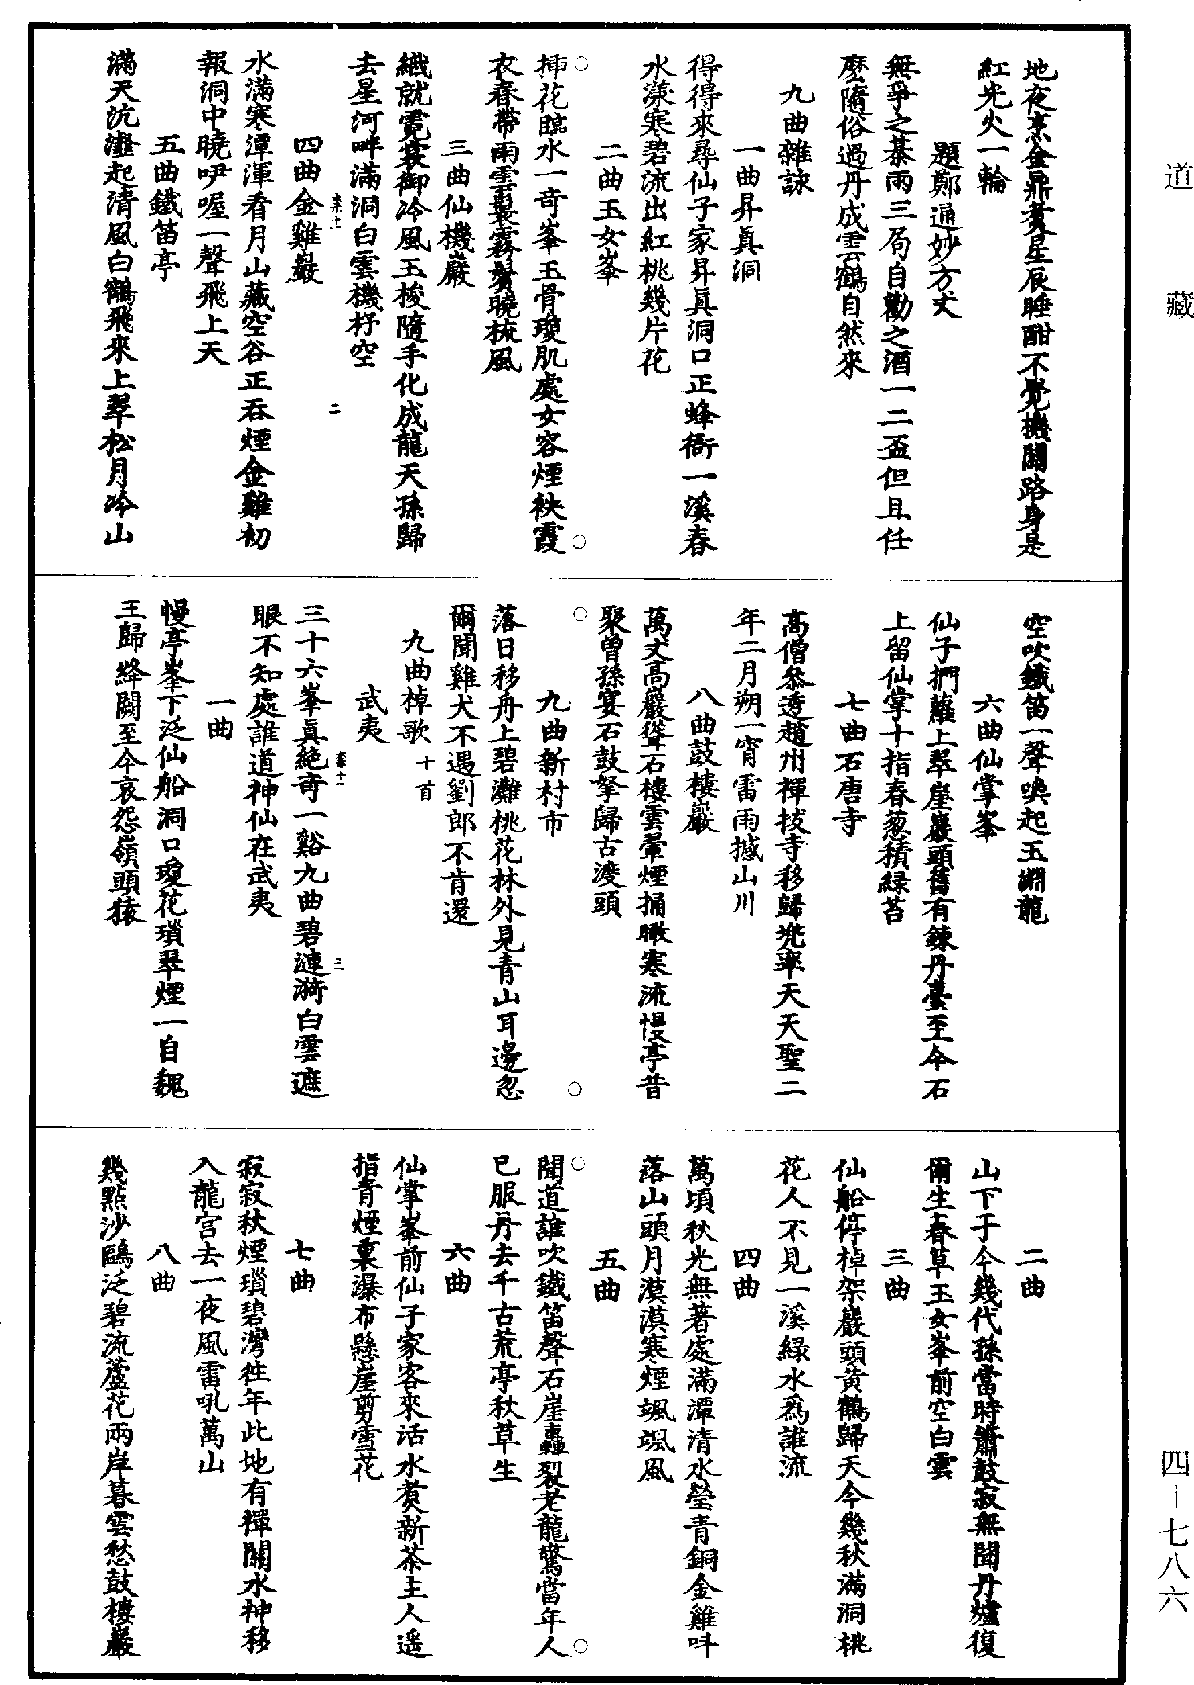 道藏
地夜烹金鼎煑星辰睡酣不覺機關路身是
紅光火一輪
題鄭通妙方丈
無爭之棊兩三局自勸之酒一二盃但且任
麼隨俗過丹成雲鶴自然來
九曲雜詠
一曲昇眞洞
得得來尋仙子家昇眞洞口正蜂衙一溪春
水漾寒碧流出紅桃幾片花
二曲玉女峯
揷花臨水一奇峯玉骨瓊肌處女容煙袂霞
衣春帶雨雲鬟霧鬢曉梳風
三曲仙機巖
織就霓裳御冷風玉梭隨手化成龍天孫歸
去星河畔滿洞白雲機杼空
二
四曲金雞巖
水滿寒潭渾看月山藏空谷正吞煙金雞初
報洞中曉咿喔一聲飛上天
五曲鐵笛亭
滿天沆瀣起清風白鶴飛來上翠松月冷山
空吹鐵笛一聲喚起玉淵龍
六曲仙掌峯
仙子捫蘿上翠崖巖頭舊有鍊丹臺至今石
上留仙掌十指春葱積緑苔
七曲石唐寺
高僧叅透趙州禪技寺移歸兠率天天聖二
年二月朔一宵雷雨撼山川
八曲鼓樓巖
萬丈高巖聳石樓雲暈煙捅瞰寒流慢亭昔
聚曾孫宴石鼓拏歸古渡頭
九曲新村市
落日移舟上碧灘桃花林外見青山耳邊忽
爾聞雞犬不遇劉郎不肯還
九曲棹歌十首
武夷
三
三十六峯眞絶奇一谿九曲碧漣漪白雲遮
眼不知處誰道神仙在武夷
一曲
慢亭峯下泛仙船洞口瓊花瑣翠煙一自魏
王歸絳闕至今哀怨嶺頭猿
二曲
山下于今幾代孫當時簫鼓寂無聞丹爐復
爾生春草玉女峯前空白雲
三曲
仙船停棹架巖頭黄鶴歸天今幾秋滿洞桃
花人不見一溪緑水爲誰流
四曲
萬頃秋光無著處滿潭清水瑩青銅金雞呌
落山頭月漠漠寒煙颯颯風
五曲
聞道誰吹鐵笛聲石崖轟裂老龍驚當年人
已服丹去千古荒亭秋草生
六曲
仙掌峯前仙子家客來活水煑新茶主人遥
指青煙裏瀑布懸崖剪雪花
七曲
寂寂秋煙瑣碧灣徃年此地有禪關水神移
入龍宫去一夜風雷吼萬山
八曲
幾點沙鷗泛碧流蘆花兩岸暮雲愁鼓樓巖
四－七八六